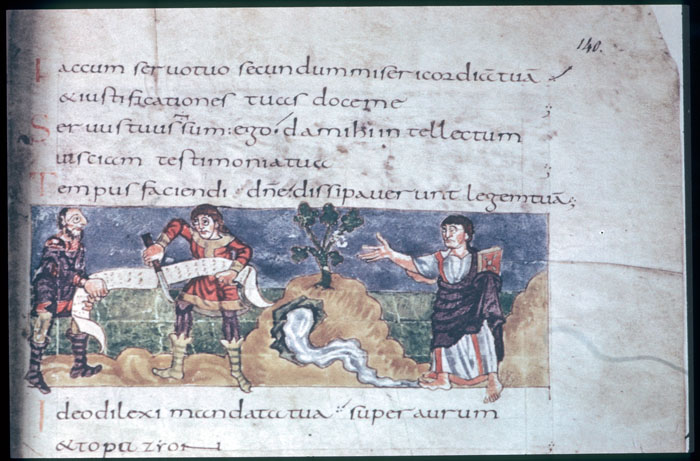 140.
Faccum seruotuo secundum misericordiātuā
&iustificationes tuas doceme
Seruus tuus sum: ego; da mihi intellectum
utsciam testimoniatua
Tempus faciendi dn̄e; dissipauerunt legemtuā;
Ideo dilexi mandatatua super aurum
&topazion